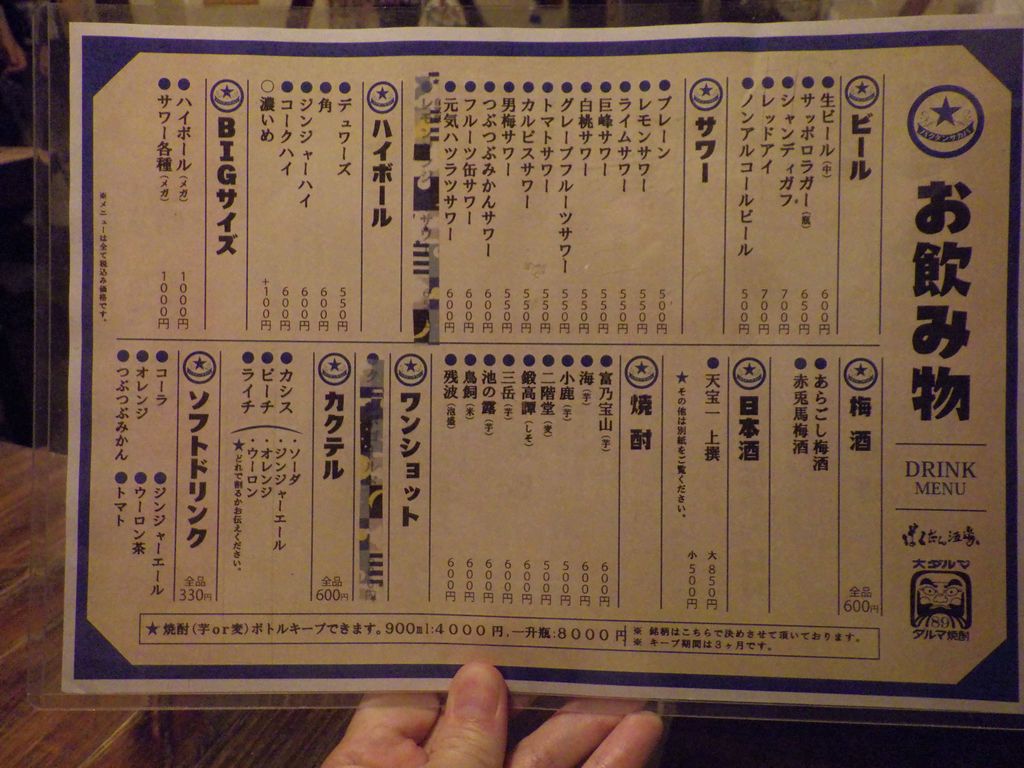 バクダンサカバ
お飲み物
DRINK
MENU
ばくだん酒場
大ダルマ
89
ダルマ焼酎
ビール
●生ビール(中) 600円
●サッポロラガー(瓶) 650円
●シャンディガフ 700円
●レッドアイ 700円
●ノンアルコールビール 500円
サワー
●プレーン 500円
●レモンサワー 550円
●ライムサワー 550円
●巨峰サワー 550円
●白桃サワー 550円
●グレープフルーツサワー 550円
●トマトサワー 550円
●カルピスサワー 550円
●男梅サワー 550円
●つぶつぶみかんサワー 600円
●フルーツ缶サワー 600円
●元気ハツラツサワー 600円
ハイボール
●デュワーズ 550円
●角 600円
●ジンジャーハイ 600円
●コークハイ 600円
○濃いめ +100円
BIGサイズ
●ハイボール(メガ) 1000円
●サワー各種(メガ) 1000円
※メニューは全て税込み価格です。
梅酒
全品
600円
●あらごし梅酒
●赤兎馬梅酒
日本酒
●天宝一 上撰 大 850円
小 500円
★その他は別紙をご覧ください。
焼酎
●富乃宝山(芋) 600円
●海(芋) 600円
●小鹿(芋) 500円
●二階堂(麦) 500円
●鍛高譚(しそ) 600円
●三岳(芋) 600円
●池の露(芋) 600円
●鳥飼(米) 600円
●残波(泡盛) 600円
ワンショット
カクテル
全品
600円
●カシス
●ピーチ
●ライチ
・ソーダ
・ジンジャーエール
・オレンジ
・ウーロン
★どれで割るかお伝えください。
ソフトドリンク
全品
330円
●ジンジャーエール
●ウーロン茶
●トマト
●コーラ
●オレンジ
●つぶつぶみかん
★焼酎(芋or麦)ボトルキープできます。900ml:4000円,一升瓶:8000円
※ 銘柄はこちらで決めさせて頂いております。
※ キープ期間は3ヶ月です。